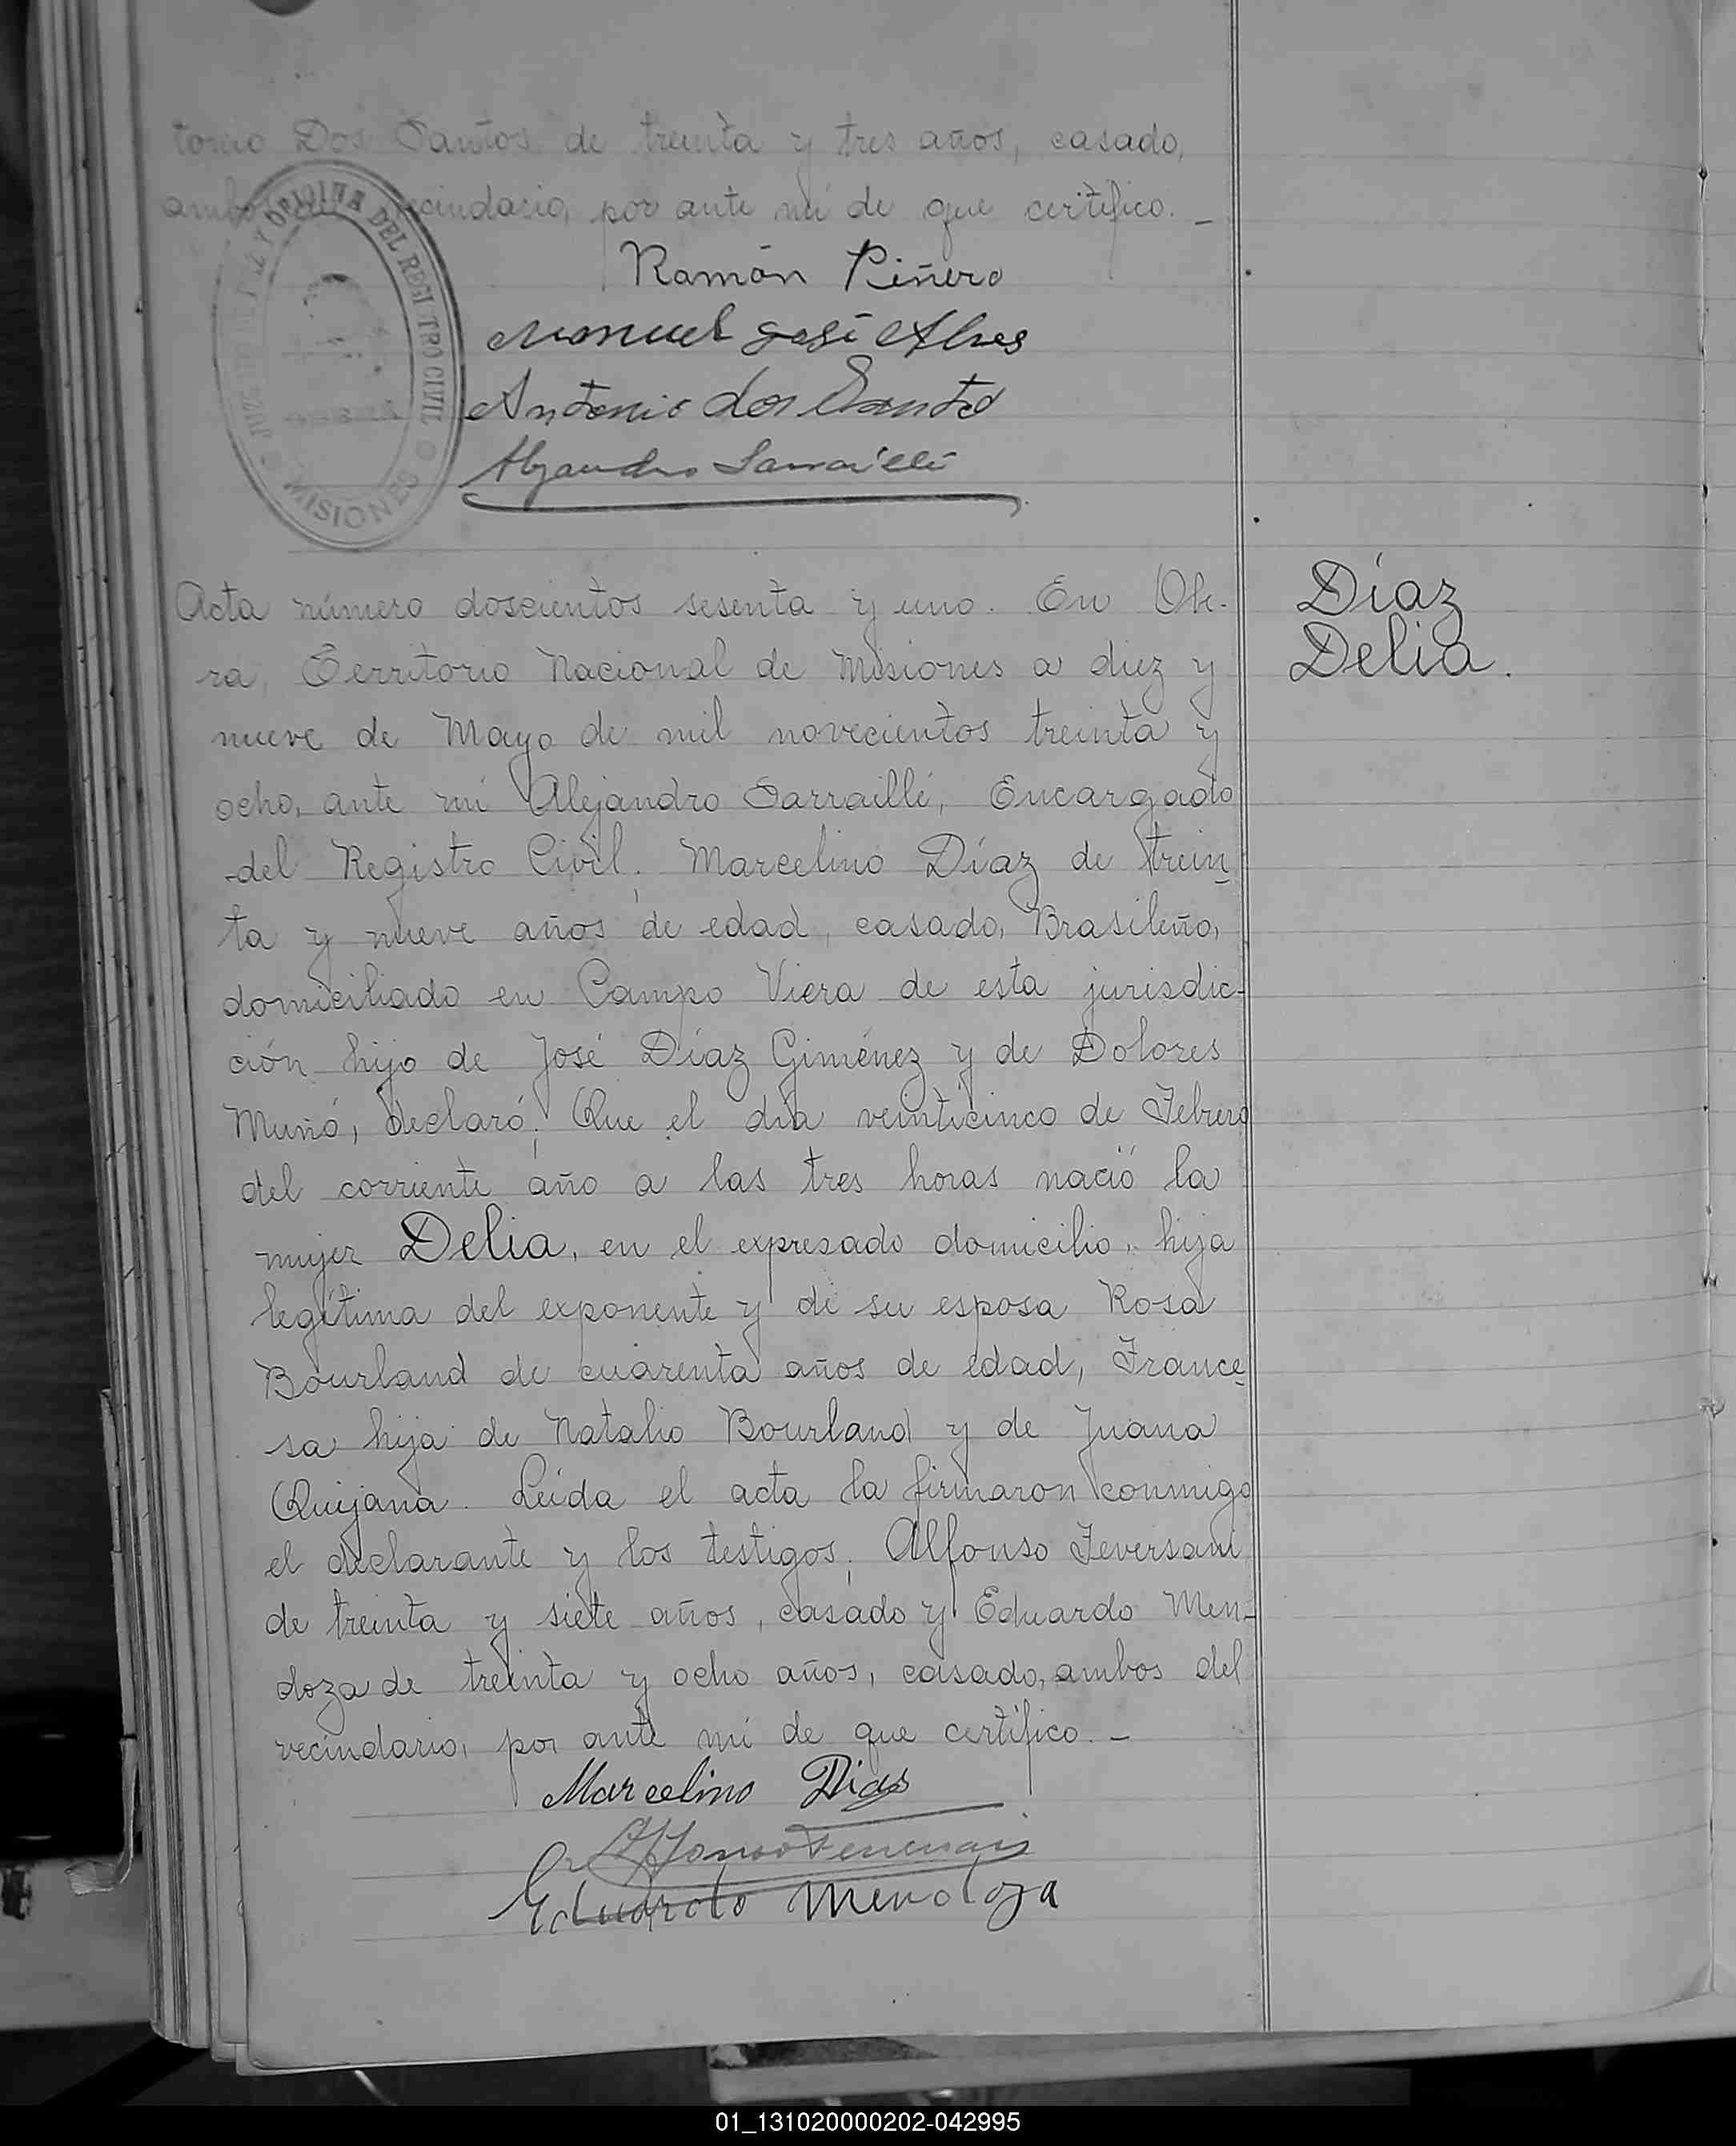 tonio Dos Santos de treinta y tres años, casado,
ambos del vecindario, por ante mí de que certifico. _
JUZGADO DE PAZ Y OFICINA DEL REGISTRO CIVIL
MISIONES
Ramón Piñero
Manuel José Alves
Antonio dos Santo
Alejandro Sarraillé
Acta número doscientos sesenta y uno. En Obe-
Díaz
ra, Territorio Nacional de Misiones a diez y
Delia.
nueve de Mayo de mil novecientos treinta y
ocho, ante mí Alejandro Sarraillé, Encargado
del Registro Civil; Marcelino Díaz de trein
ta y nueve años de edad, casado, Brasileño,
domiciliado en Campo Viera de esta jurisdic-
ción hijo de José Díaz Giménez y de Dolores
Muñó, declaró: Que el día veinticinco de Febrero
del corriente año a las tres horas nació la
mujer Delia, en el expresado domicilio, hija
legítima del exponente y de su esposa Rosa
Bourland de cuarenta años de edad, France
sa hija de Natalio Bourland y de Juana
Quijana. Leída el acta la firmaron conmigo
el declarante y los testigos; Alfonso Feversani
de treinta y siete años, casado y Eduardo Men-
doza de treinta y ocho años, casado, ambos del
vecindario, por ante mí de que certifico. _
Marcelino Dias
Eduardo Mendoza
01_131020000202-042995